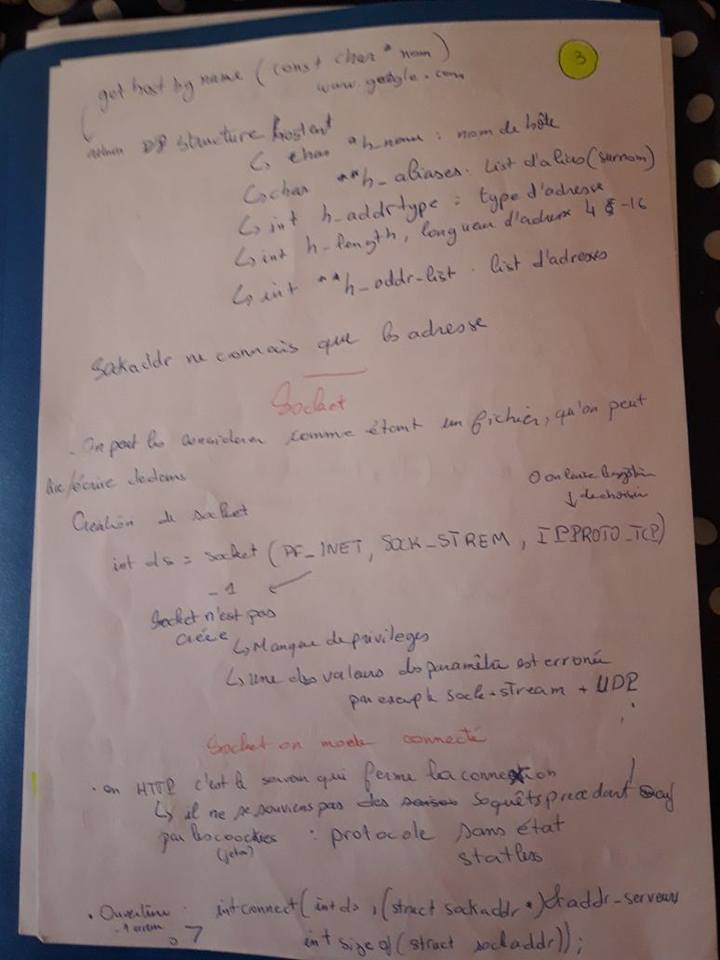 3
get host by name (const char * nom)
www.google.com
structure hostent
↳ char *h_name : nom de hôte
↳ char **h_aliases : list d'alias (surnom)
↳ int h_addrtype : type d'adresse
↳ int h_length, longueur d'adresse 4 -16
↳ int **h_addr-list : list d'adresses
Sakaddr ne connais que les adresse
Socket
. On peut les considerer comme étant un fichier, qu'on peut
lire/écrire dedans
0 on laisse le système
↓ de choisir
Création de socket
int ds = socket (PF_INET, SOCK_STREM, IPPROTO_TCP)
-1
Socket n'est pas
créée
↳ Manque de privileges
↳ une des valeurs des paramètre est erronée
par exemple sock-stream + UDP
Socket en mode connecté
. en HTTP c'est le serveur qui ferme la connextion
↳ il ne se souviens pas des soquêts precedant sauf
par les coockies : protocole sans état
(jeton)
statless
. Ouverture : int connect (int ds, (struct sakaddr *) &addr-serveur
-1 erreur
int size of (struct sockaddr));